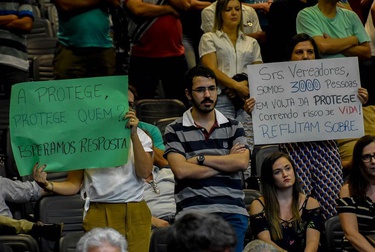 A PROTEGE,
PROTEGE QUEM?
ESPERAMOS RESPOSTA
Srs VEREADORES,
SOMOS 3000 PESSOAS
EM VOLTA DA PROTEGE
CORRENDO RISCO DE VIDA!
REFLITAM SOBRE